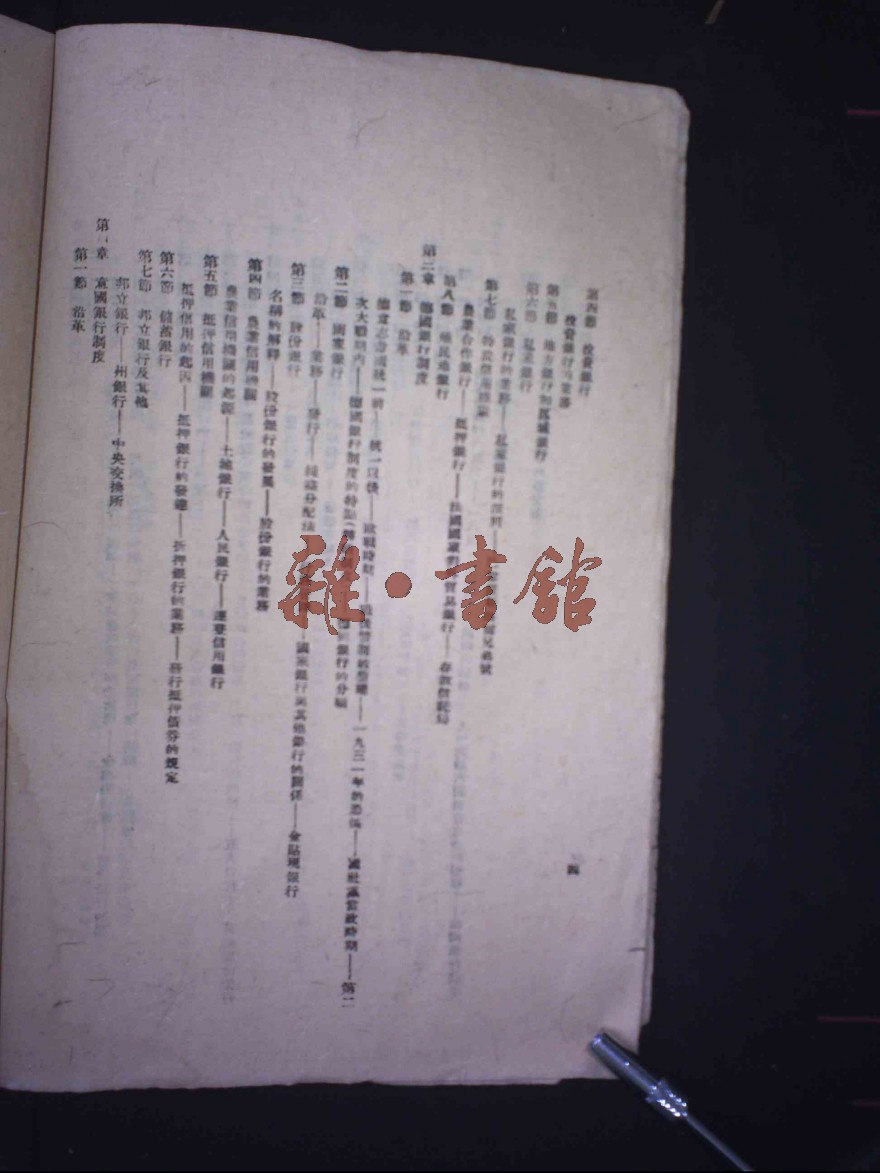 第四節 投資銀行
投資銀行的業務
第五節 地方銀行和區域銀行
第六節 私家銀行
私家銀行的業務——私家銀行的
第七節 特殊信用機關
農業合作銀行——抵押銀行——法國國家對外貿易銀行——存款信託局
第八節 殖民地銀行
第二章 德國銀行制度
第一節 沿革
德意志帝國統一前——統一以後——歐戰時期——一九三一年的恐慌——國社黨當政時期——第二
次大戰期內——德國銀行制度的特點 銀行的分類
第二節 國家銀行
沿革——業務——發行——純益分配法 國家銀行與其他銀行的關係——金貼現銀行
第三節 股份銀行
名稱的解釋——股份銀行的發展——股份銀行的業務
第四節 農業信用機關
農業信用機關的起源——土地銀行——人民銀行——連繫信用銀行
第五節 抵押信用機關
抵押信用的起因——抵押銀行的發達——抵押銀行的業務——發行抵押債券的規定
第六節 儲蓄銀行
第七節 邦立銀行及其他
邦立銀行——州銀行——中央交換所
章 意國銀行制度
第一節 沿革
四
雜·書館